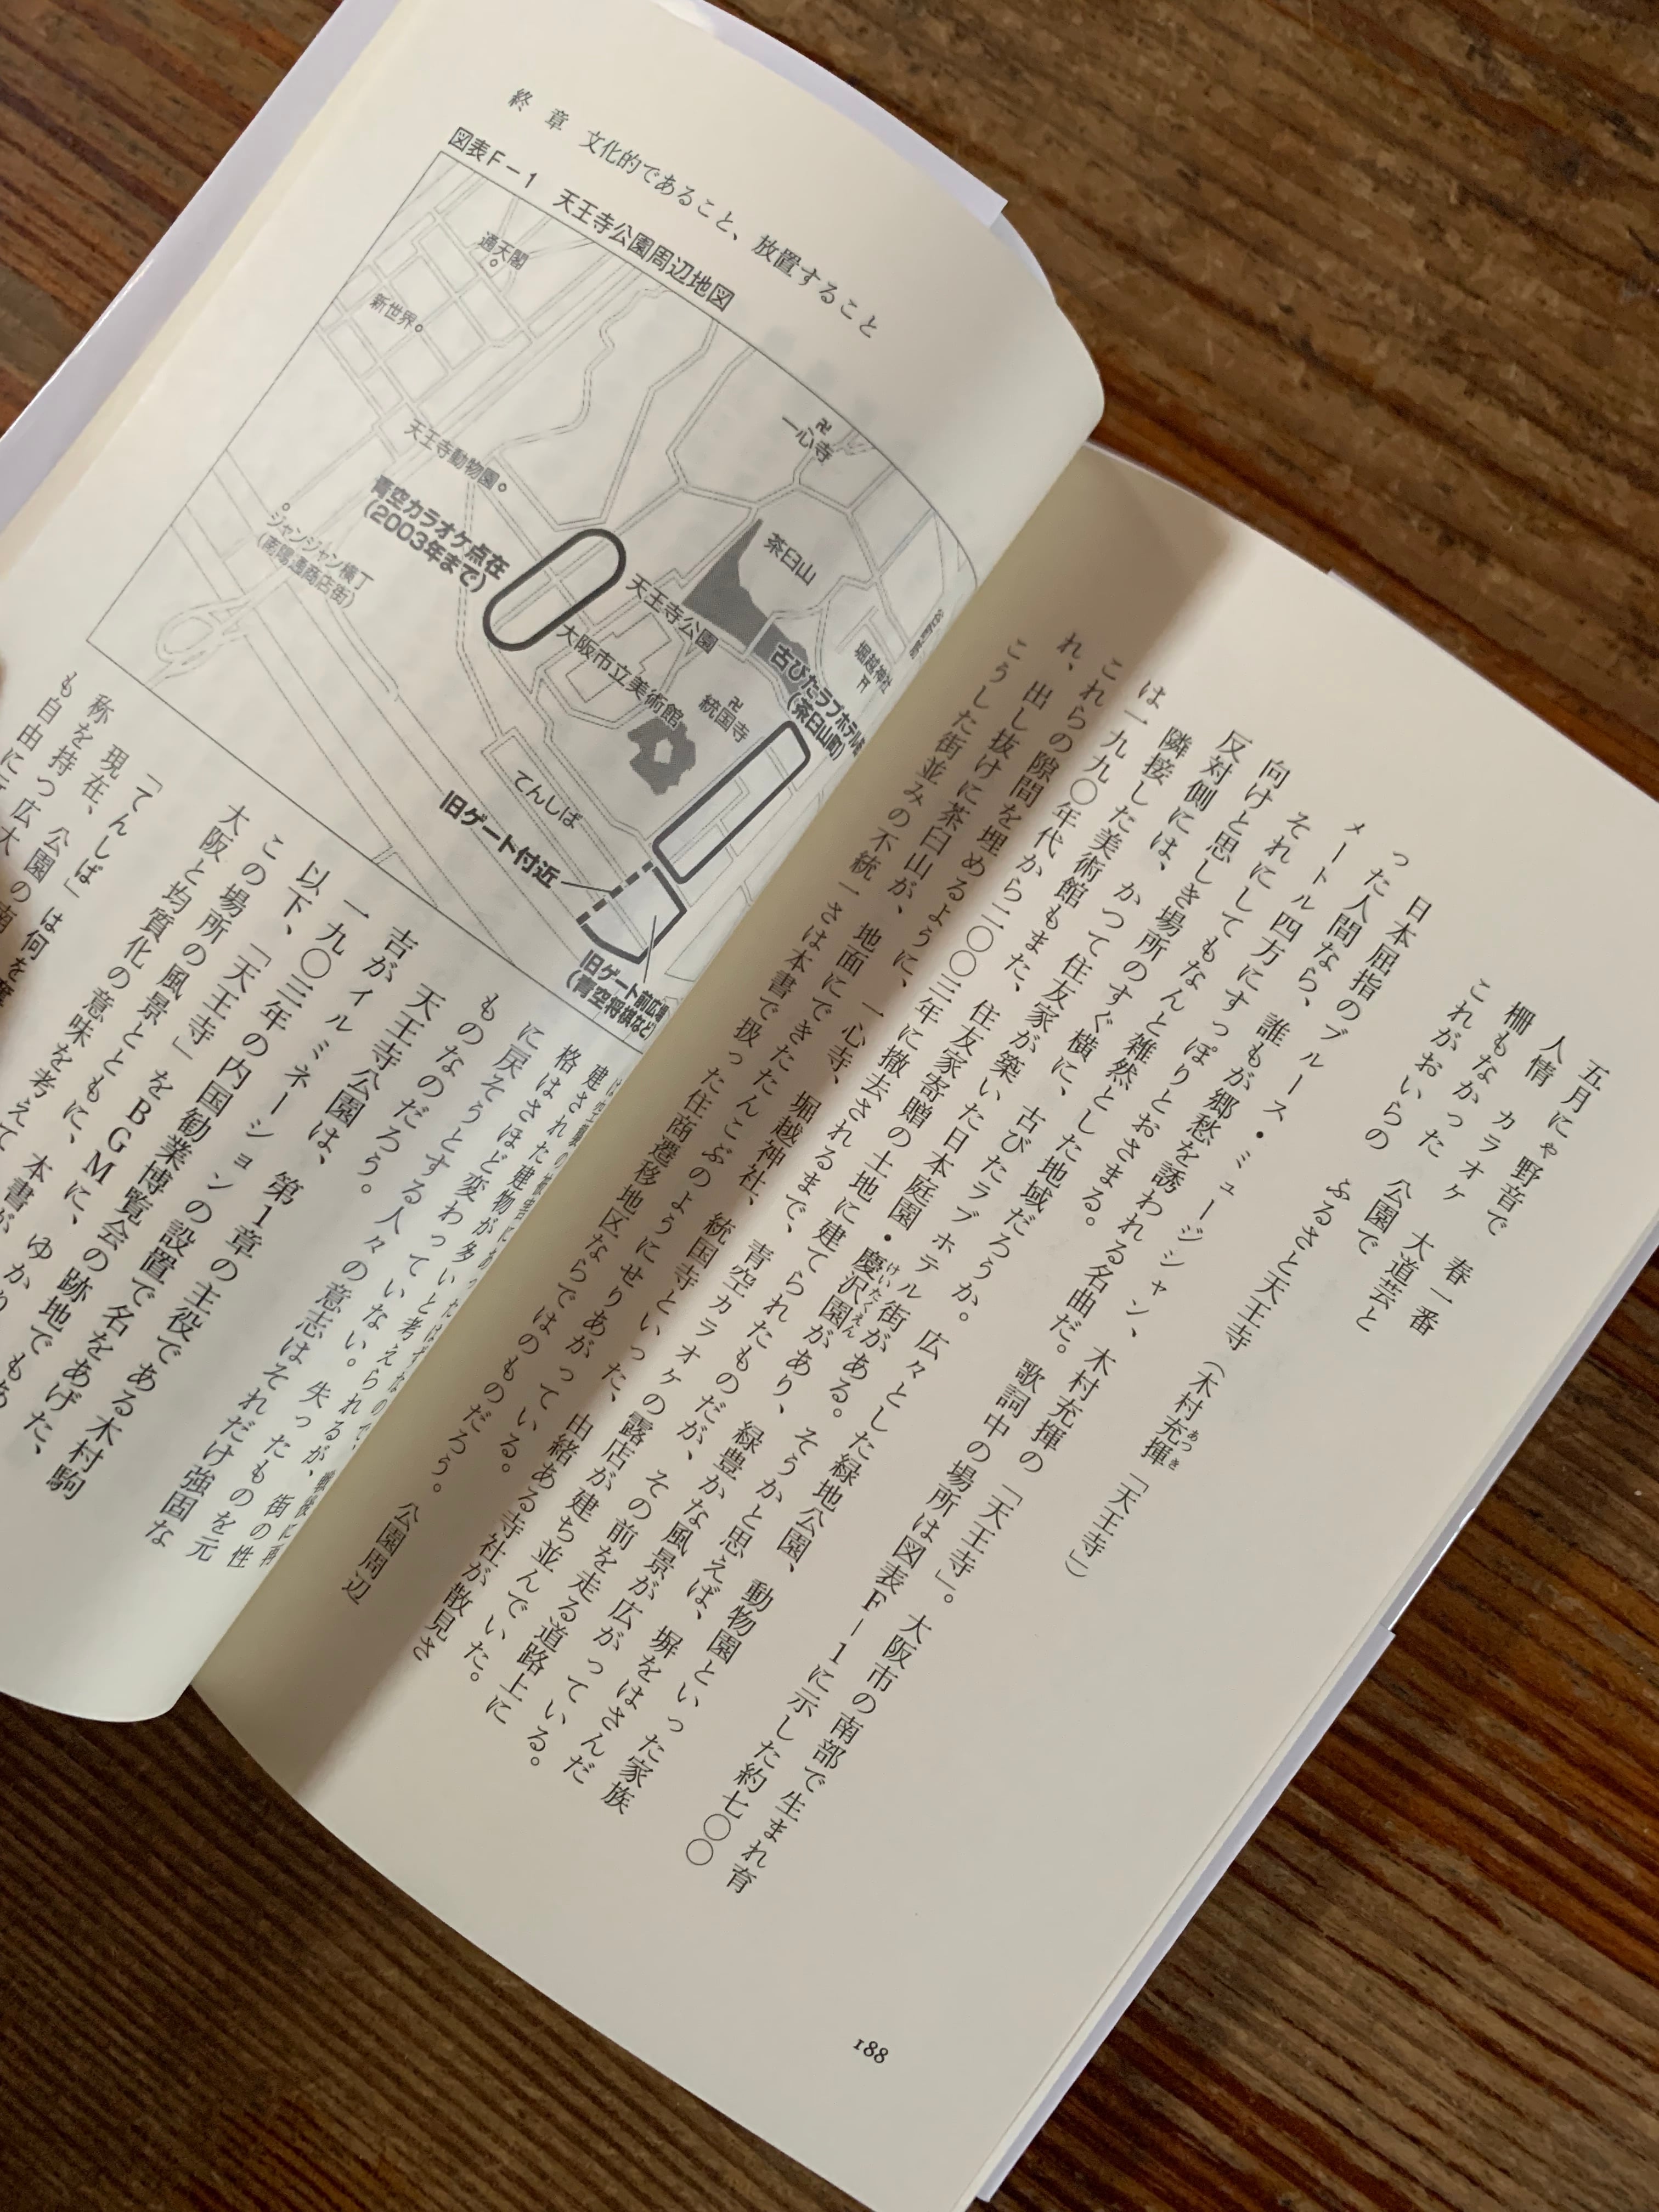 五月にゃ野音で　春一番
人情　カラオケ　大道芸と
柵もなかった　公園で
これがおいらの　ふるさと天王寺（木村充揮「天王寺」）
あつき
日本屈指のブルース・ミュージシャン、木村充揮の「天王寺」。大阪市の南部で生まれ育
った人間なら、誰もが郷愁を誘われる名曲だ。歌詞中の場所は図表F－1に示した約七〇〇
メートル四方にすっぽりとおさまる。
それにしてもなんと雑然とした地域だろうか。広々とした緑地公園、動物園といった家族
向けと思しき場所のすぐ横に、古びたラブホテル街がある。そうかと思えば、塀をはさんだ
反対側には、かつて住友家が築いた日本庭園・慶沢園があり、緑豊かな風景が広がっている。
けいたくえん
隣接した美術館もまた、住友家寄贈の土地に建てられたものだが、その前を走る道路上に
は一九九〇年代から二〇〇三年に撤去されるまで、青空カラオケの露店が建ち並んでいた。
これらの隙間を埋めるように、一心寺、堀越神社、統国寺といった、由緒ある寺社が散見さ
れ、出し抜けに茶臼山が、地面にできたたんこぶのようにせりあがっている。
こうした街並みの不統一さは本書で扱った住商遷移地区ならではのものだろう。公園周辺
188
終　章　文化的であること、放置すること
図表F－1　天王寺公園周辺地図
通天閣
新世界
一心寺
天王寺動物園
青空カラオケ点在
（2003年まで）
ジャンジャン横丁
（南陽通商店街）
茶臼山
天王寺公園
堀越神社
大阪市立美術館
古びたラブホテル
（茶臼山町）
統国寺
てんしば
旧ゲート付近
旧ゲート前広場
（青空将棋など）
建された建物が多いと考えられるが、街の性
格はさほど変わっていない。失ったものを元
に戻そうとする人々の意志はそれだけ強固な
ものなのだろう。
天王寺公園は、第1章の主役である木村駒
吉がイルミネーションの設置で名をあげた、
一九〇三年の内国勧業博覧会の跡地でもあ
以下、「天王寺」をBGMに、ゆかり
この場所の風景とともに、本書が
大阪と均質化の意味を考えて
「てんしば」は何を
現在、公園の南
称を持つ広大
も自由に